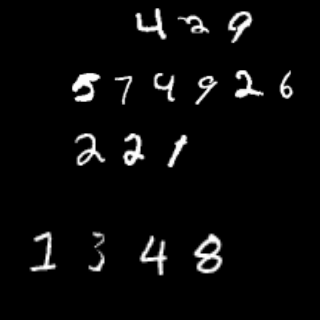 429
574926
221
1348